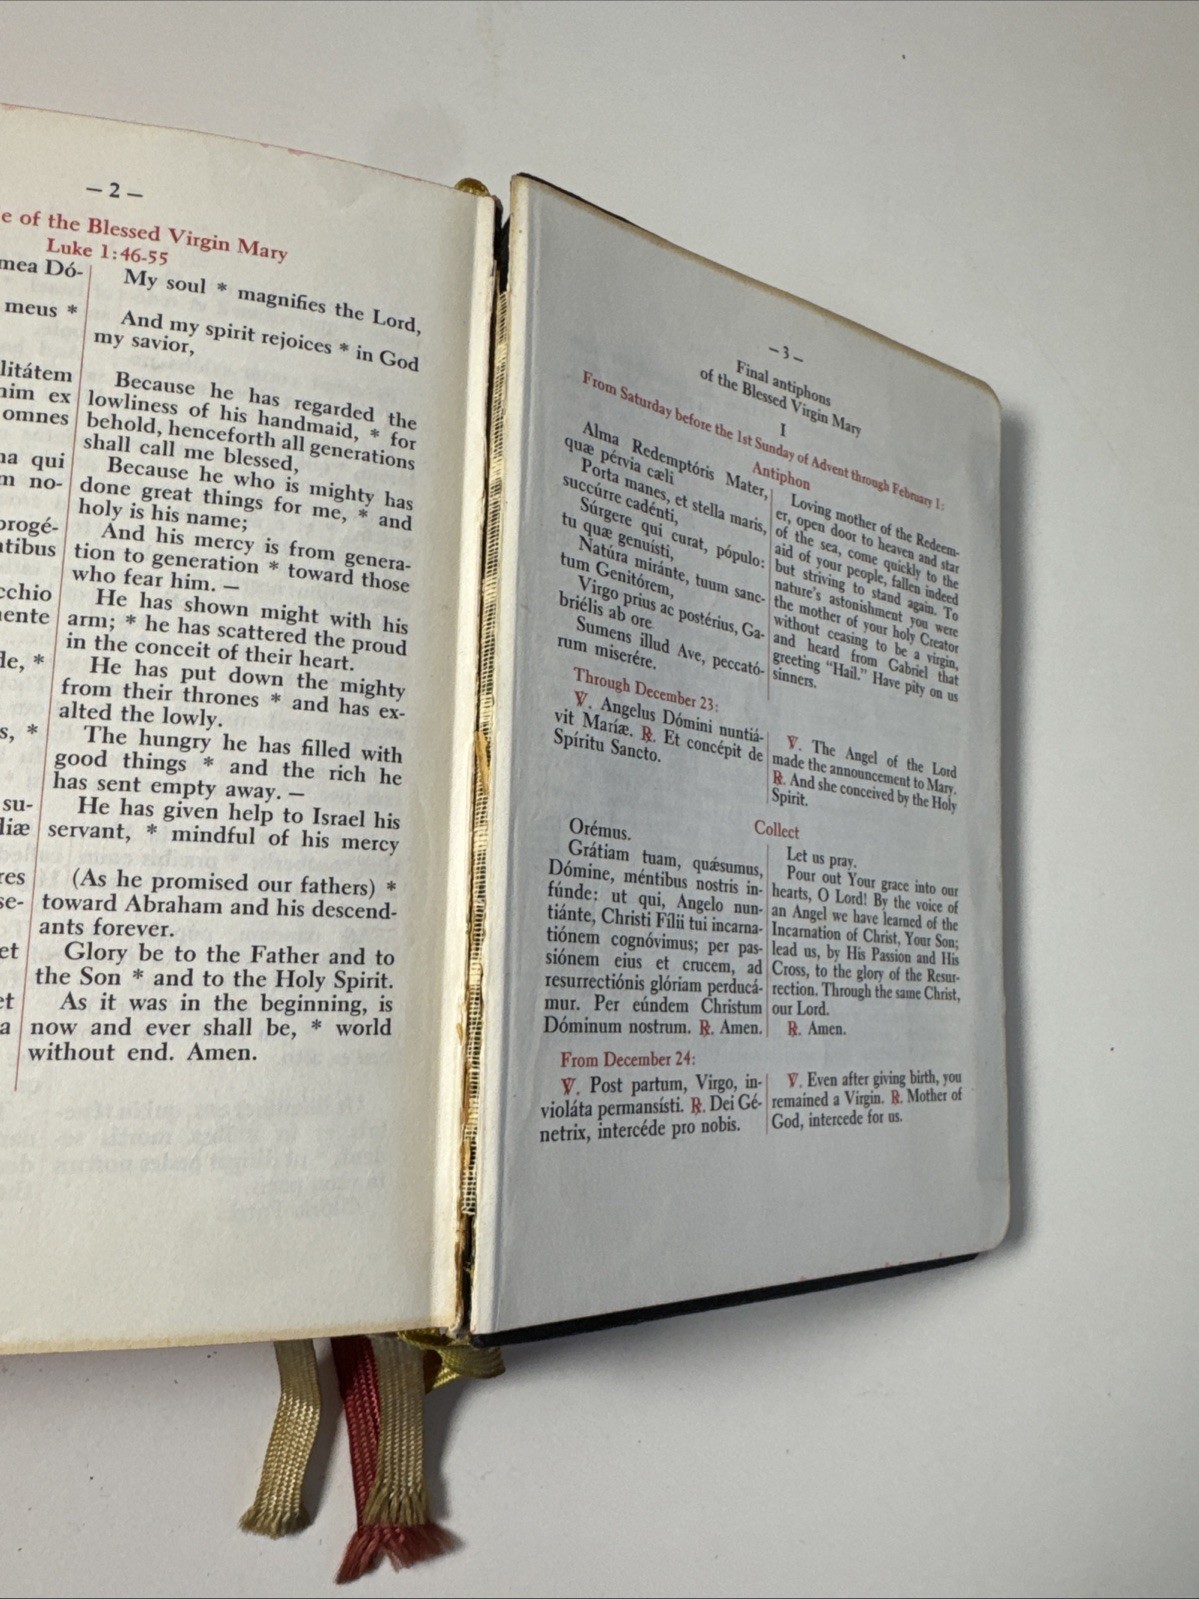 — 2 —
e of the Blessed Virgin Mary
Luke 1:46-55
mea Dó-
meus *
litátem
nim ex
omnes
na qui
m no-
progé-
ntibus
cchio
mente
de, *
s, *
su-
liæ
res
se-
et
et
a
My soul * magnifies the Lord,
And my spirit rejoices * in God
my savior,
Because he has regarded the
lowliness of his handmaid, * for
behold, henceforth all generations
shall call me blessed,
Because he who is mighty has
done great things for me, * and
holy is his name;
And his mercy is from genera-
tion to generation * toward those
who fear him. —
He has shown might with his
arm; * he has scattered the proud
in the conceit of their heart.
He has put down the mighty
from their thrones * and has ex-
alted the lowly.
The hungry he has filled with
good things * and the rich he
has sent empty away. —
He has given help to Israel his
servant, * mindful of his mercy
(As he promised our fathers) *
toward Abraham and his descend-
ants forever.
Glory be to the Father and to
the Son * and to the Holy Spirit.
As it was in the beginning, is
now and ever shall be, * world
without end. Amen.
— 3 —
Final antiphons
of the Blessed Virgin Mary
I
From Saturday before the 1st Sunday of Advent through February 1:
Antiphon
Alma Redemptóris Mater,
quæ pérvia cæli
Porta manes, et stella maris,
succúrre cadénti,
Súrgere qui curat, pópulo:
tu quæ genuísti,
Natúra miránte, tuum sanc-
tum Genitórem,
Virgo prius ac postérius, Ga-
briélis ab ore
Sumens illud Ave, peccató-
rum miserére.
Loving mother of the Redeem-
er, open door to heaven and star
of the sea, come quickly to the
aid of your people, fallen indeed
but striving to stand again. To
nature's astonishment you were
the mother of your holy Creator
without ceasing to be a virgin,
and heard from Gabriel that
greeting “Hail.” Have pity on us
sinners.
Through December 23:
℣. Angelus Dómini nuntiá-
vit Maríæ. ℟. Et concépit de
Spíritu Sancto.
℣. The Angel of the Lord
made the announcement to Mary.
℟. And she conceived by the Holy
Spirit.
Collect
Orémus.
Grátiam tuam, quǽsumus,
Dómine, méntibus nostris in-
fúnde: ut qui, Angelo nun-
tiánte, Christi Fílii tui incarna-
tiónem cognóvimus; per pas-
siónem eius et crucem, ad
resurrectiónis glóriam perducá-
mur. Per eúndem Christum
Dóminum nostrum. ℟. Amen.
Let us pray.
Pour out Your grace into our
hearts, O Lord! By the voice of
an Angel we have learned of the
Incarnation of Christ, Your Son;
lead us, by His Passion and His
Cross, to the glory of the Resur-
rection. Through the same Christ,
our Lord.
℟. Amen.
From December 24:
℣. Post partum, Virgo, in-
violáta permansísti. ℟. Dei Gé-
netrix, intercéde pro nobis.
℣. Even after giving birth, you
remained a Virgin. ℟. Mother of
God, intercede for us.